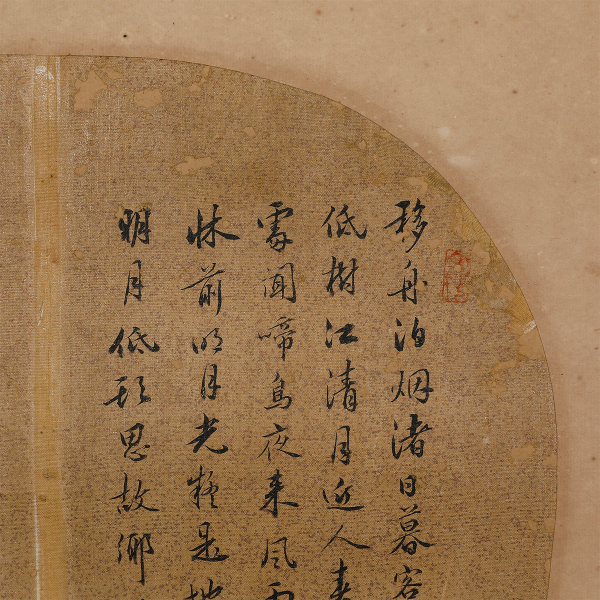 移舟泊烟渚日暮客
低樹江清月近人春
處聞啼鳥夜来風
牀前明月光疑是地
明月低頭思故鄉